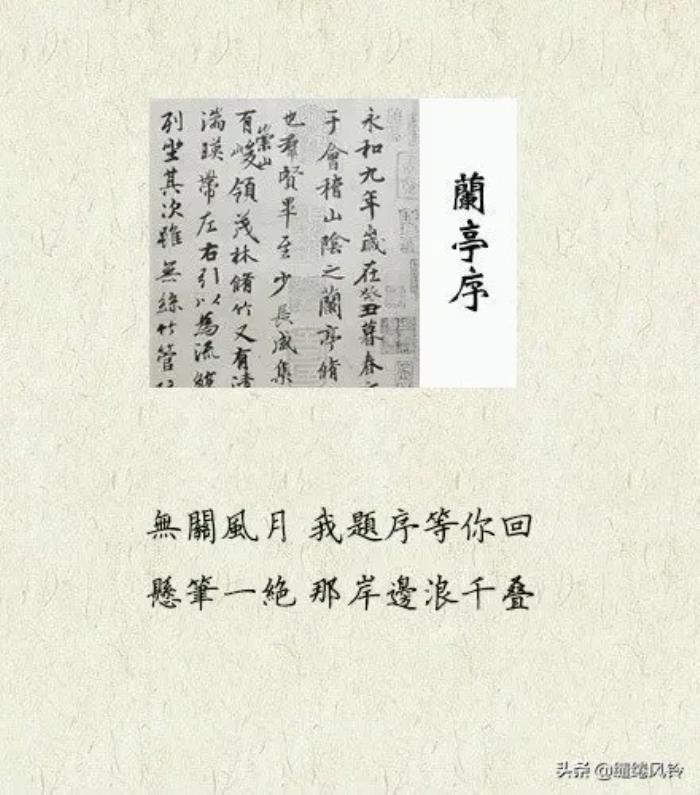 永和九年歲在癸丑暮春
于會稽山陰之蘭亭脩
也羣賢畢至少長咸集
有崇山峻領茂林脩竹又有清
湍暎帶左右引以為流觴
列坐其次雖無絲竹管
蘭亭序
無關風月 我題序等你回
懸筆一絕 那岸邊浪千叠
头条 @缱绻风铃